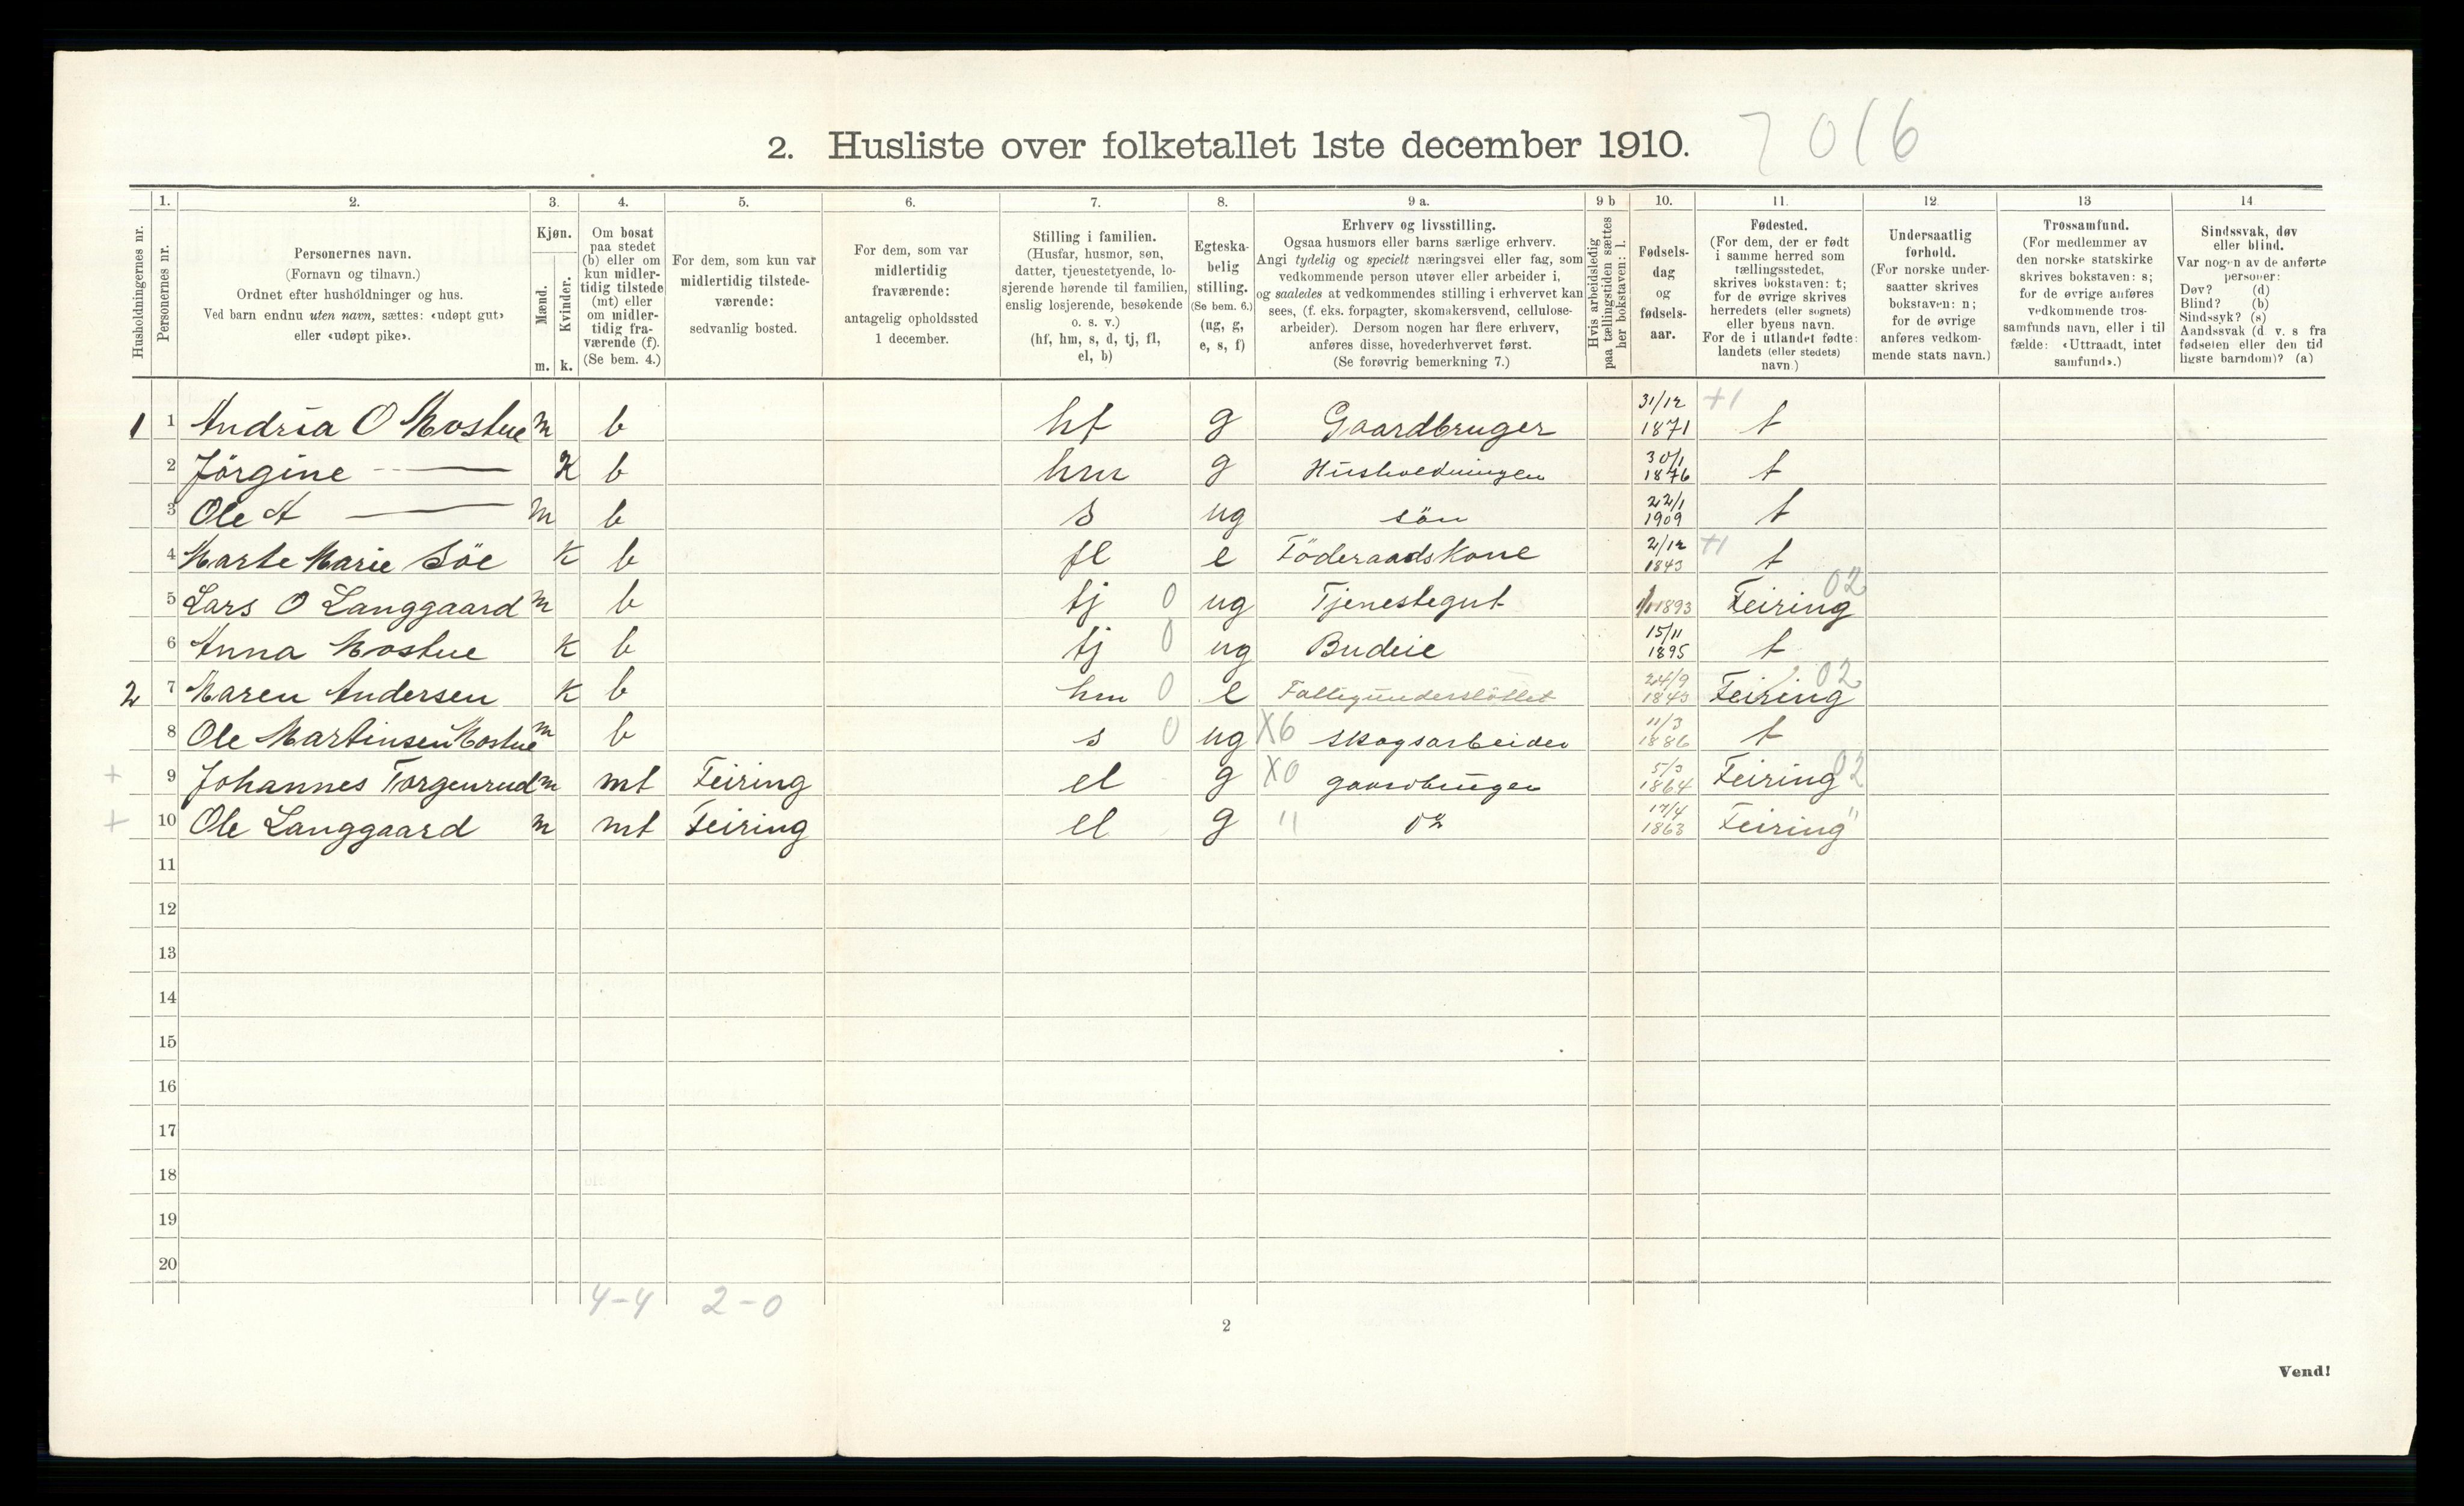 2. Husliste over folketallet 1ste december 1910. 7016
Husholdningernes nr.
1. Personernes nr.
2. Personernes navn.
(Fornavn og tilnavn.)
Ordnet efter husholdninger og hus.
Ved barn endnu uten navn, sættes: «udøpt gut»
eller «udøpt pike».
3. Kjøn.
Mænd. m.
Kvinder. k.
4. Om bosat
paa stedet
(b) eller om
kun midler-
tidig tilstede
(mt) eller
om midler-
tidig fra-
værende (f).
(Se bem. 4.)
5. For dem, som kun var
midlertidig tilstede-
værende:
sedvanlig bosted.
6. For dem, som var
midlertidig
fraværende:
antagelig opholdssted
1 december.
7. Stilling i familien.
(Husfar, husmor, søn,
datter, tjenestetyende, lo-
sjerende hørende til familien,
enslig losjerende, besøkende
o. s. v.)
(hf, hm, s, d, tj, fl,
el, b)
8. Egteska-
belig
stilling.
(Se bem. 6.)
(ug, g,
e, s, f)
9 a. Erhverv og livsstilling.
Ogsaa husmors eller barns særlige erhverv.
Angi tydelig og specielt næringsvei eller fag, som
vedkommende person utøver eller arbeider i,
og saaledes at vedkommendes stilling i erhvervet kan
sees, (f. eks. forpagter, skomakersvend, cellulose-
arbeider). Dersom nogen har flere erhverv,
anføres disse, hovederhvervet først.
(Se forøvrig bemerkning 7.)
9 b Hvis arbeidsledig
paa tællingstiden sættes
her bokstaven: l.
10. Fødsels-
dag
og
fødsels-
aar.
11. Fødested.
(For dem, der er født
i samme herred som
tællingsstedet,
skrives bokstaven: t;
for de øvrige skrives
herredets (eller sognets)
eller byens navn.
For de i utlandet fødte:
landets (eller stedets)
navn.)
12. Undersaatlig
forhold.
(For norske under-
saatter skrives
bokstaven: n;
for de øvrige
anføres vedkom-
mende stats navn.)
13 Trossamfund.
(For medlemmer av
den norske statskirke
skrives bokstaven: s;
for de øvrige anføres
vedkommende tros-
samfunds navn, eller i til
fælde: «Uttraadt, intet
samfund».)
14 Sindssvak, døv
eller blind.
Var nogen av de anførte
personer:
Døv? (d)
Blind? (b)
Sindssyk? (s)
Aandssvak (d. v. s. fra
fødselen eller den tid
ligste barndom)? (a)
1 1 Andria O Mostue m b hf g Gaardbruger 31/12 1871 +1 t
2 Jörgine -- — K b hm g Husholdningen 30/1 1876 t
3 Ole A — m b s ug sön 22/1 1909 t
4 Marte Marie Söe K b fl e Föderaadskone 2/12 1843 +1 t
5 Lars O Langgaard m b tj 0 ug Tjenestegut 1893 Feiring 02
6 Anna Mostue K b tj 0 ug Budeie 15/11 1895 t
2 7 Maren Andersen K b hm 0 e Fattigunderstöttet 24/9 1843 Feiring 02
8 Ole Martinsen Mostue m b s 0 ug X6 Skogsarbeider 11/3 1886 t
+ 9 Johannes Torgenrud m mt Feiring el g X0 gaardbruger 5/3 1864 Feiring 02
+ 10 Ole Langgaard m mt Feiring el g " do 17/4 1863 Feiring "
11
12
13
14
15
16
17
18
19
20
4-4 2-0
2
Vend!